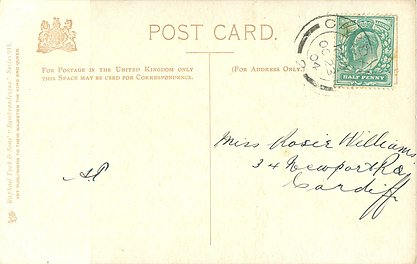 POST CARD.
FOR POSTAGE IN THE UNITED KINGDOM ONLY
THIS SPACE MAY BE USED FOR CORRESPONDENCE.
(FOR ADDRESS ONLY.
HALF PENNY
OC 23
04
Miss Rosie Williams
34 Newport Rd
Cardiff
Raphael Tuck & Sons'
ART PUBLISHERS TO THEIR MAJESTIES THE KING AND QUEEN.